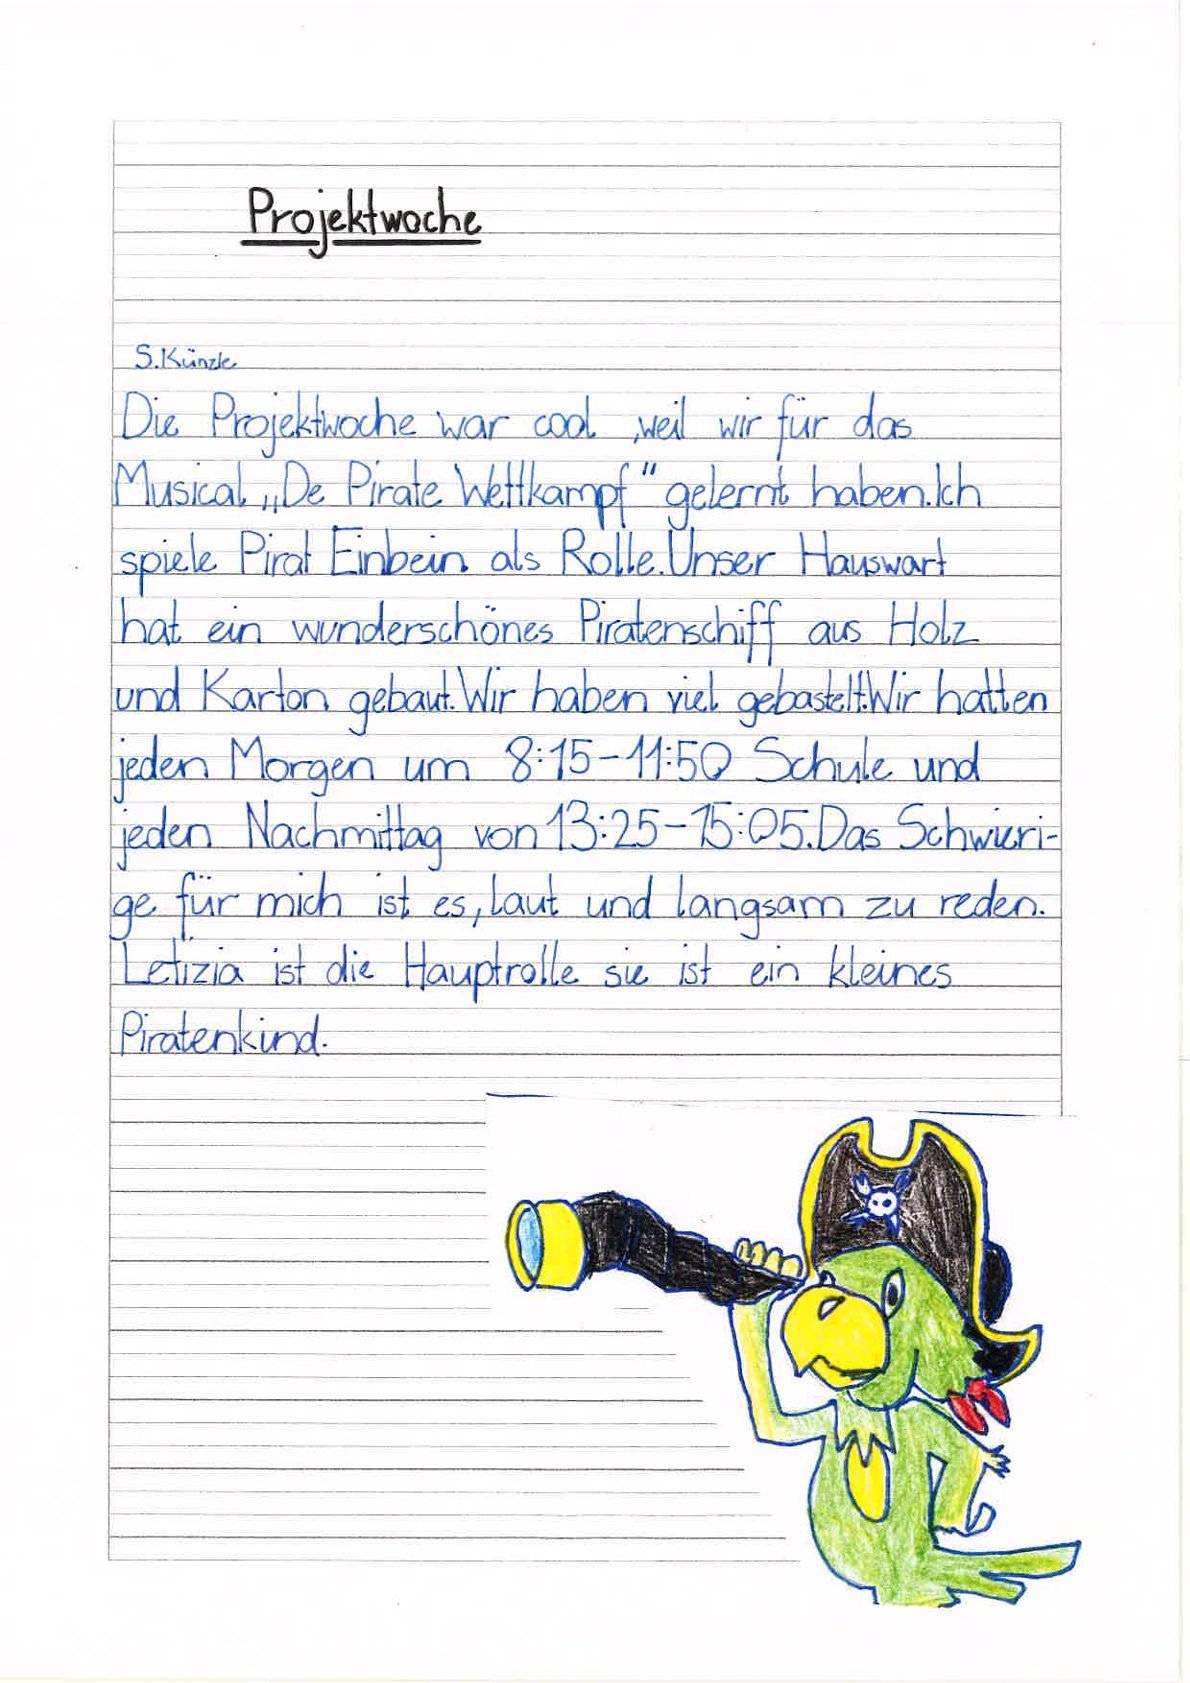 Projektwoche
S. Künzle
Die Projektwoche war cool ,weil wir für das
Musical „De Pirate Wettkampf“ gelernt haben.Ich
spiele Pirat Einbein als Rolle.Unser Hauswart
hat ein wunderschönes Piratenschiff aus Holz
und Karton gebaut.Wir haben viel gebastelt.Wir hatten
jeden Morgen um 8:15-11:50 Schule und
jeden Nachmittag von 13:25-15:05.Das Schwieri-
ge für mich ist es, laut und langsam zu reden.
Letizia ist die Hauptrolle sie ist ein kleines
Piratenkind.